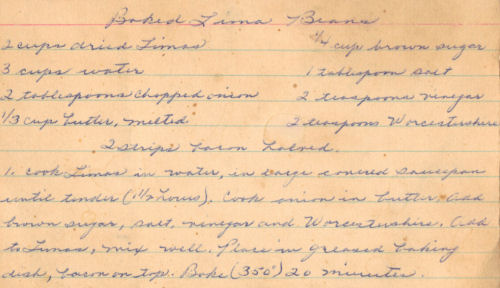 Baked Lima Beans
2 cups dried Limas 1/4 cup brown sugar
3 cups water 1 tablespoon salt
2 tablespoons chopped onion 2 teaspoons vinegar
1/3 cup butter, melted 2 teaspoons Worcestershire
2 strips bacon halved.
1. Cook Limas in water, in large covered saucepan
until tender (1 1/2 hours). Cook onion in butter, add
brown sugar, salt, vinegar and Worcestershire. Add
to Limas, mix well. Place in greased baking
dish, bacon on top. Bake (350°) 20 minutes.